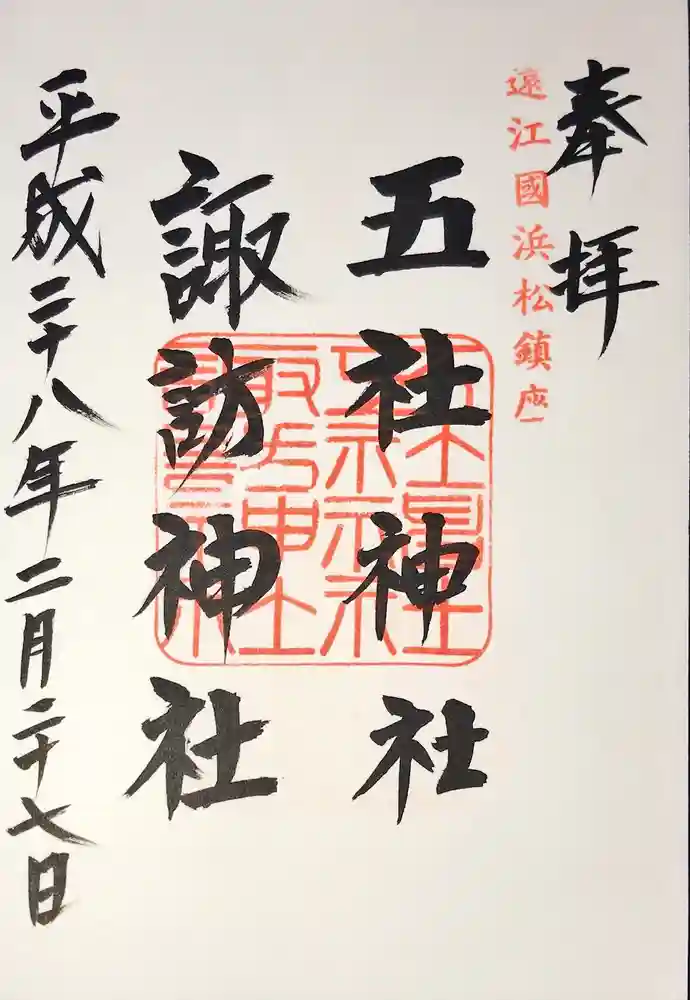 奉拝
遠江國浜松鎮座
五社神社
諏訪神社
平成二十八年二月二十七日
五社神社
諏訪神社